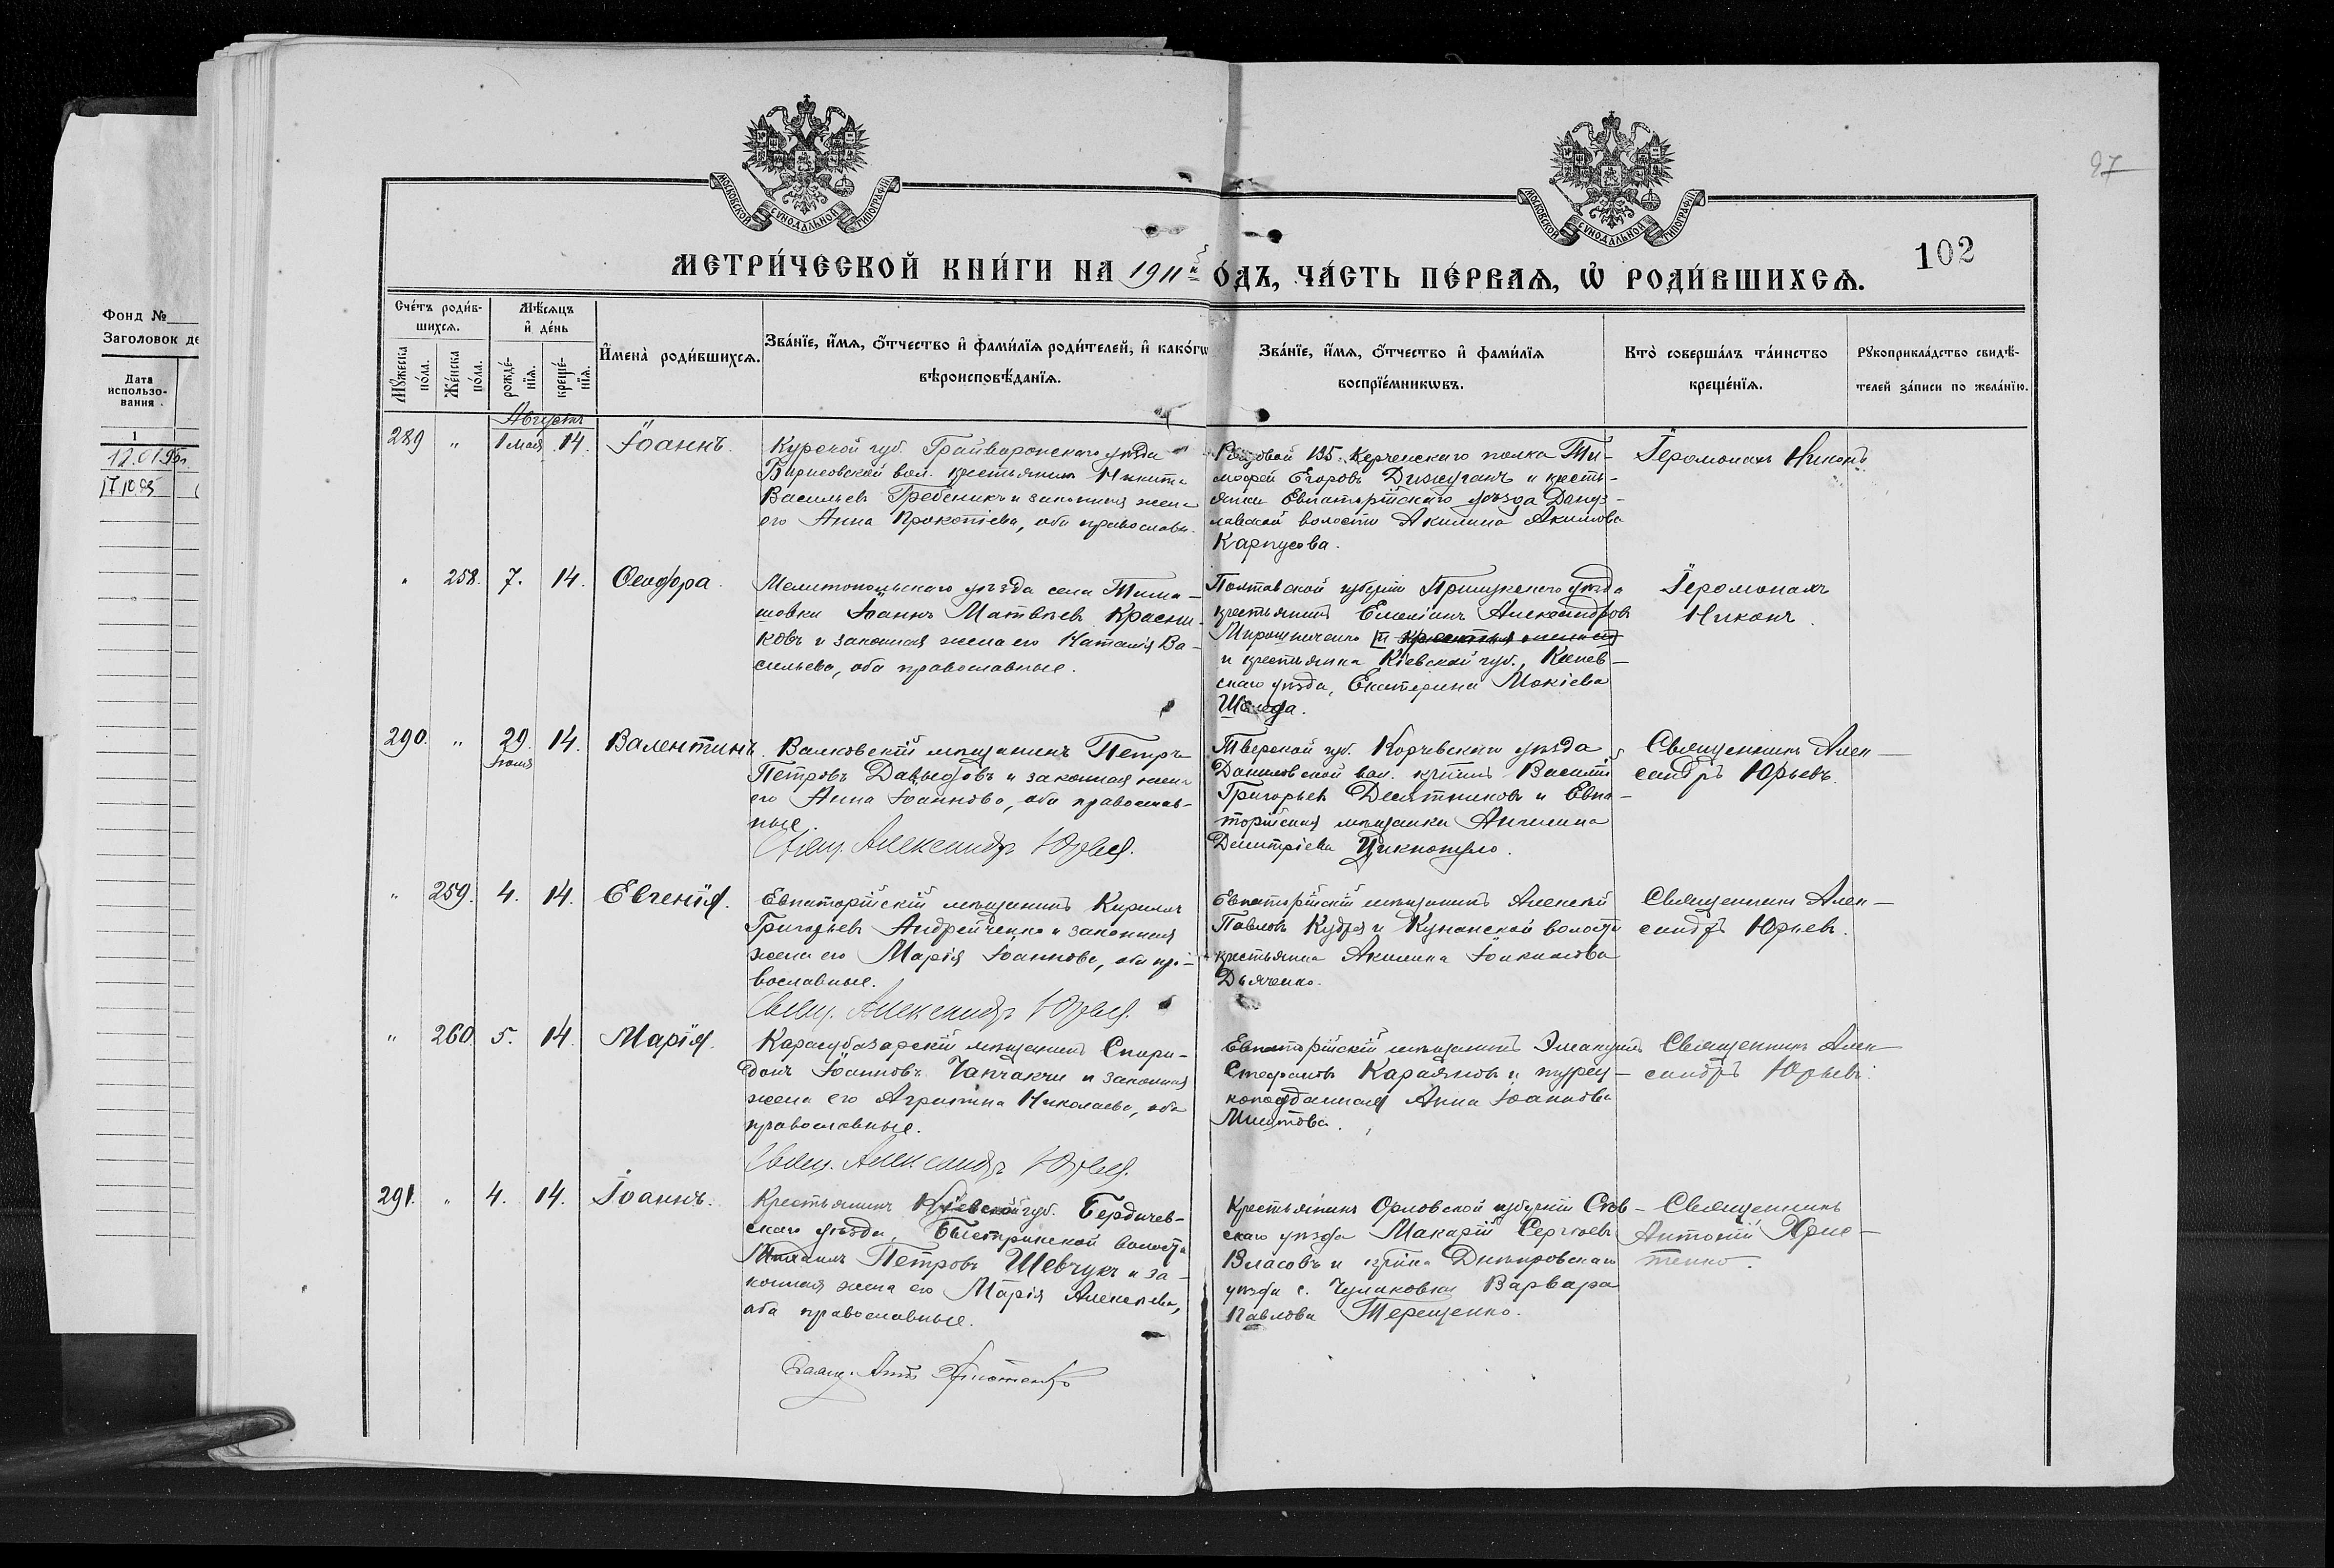 97
102
МОСКОВСКОЙ СѴНОДАЛЬНОЙ ТИПОГРАФІИ
МОСКОВСКОЙ СѴНОДАЛЬНОЙ ТИПОГРАФІИ
МЕТРИ́ЧЕСКОЙ КНИ́ГИ НА 1911й го́дъ, ЧА́СТЬ ПЕ́РВАѦ, Ѡ҆ РОДИ́ВШИХСѦ.
Фонд №
Заголовок де
Дата
использо-
вания
1
12.01.95г
17.10.95
Сче́тъ роди́в-
шихсѧ.
Мꙋ́жеска по́ла.
Же́нска по́ла.
Мѣ́сѧцъ
и҆ де́нь
рожде́-нїѧ.
креще́-нїѧ.
И҆мена̀ роди́вшихсѧ.
Зва́нїе, и҆́мѧ, ѻ҆́тчество и҆ фами́лїѧ роди́телей, и҆ како́гѡ
вѣроисповѣ́данїѧ.
Зва́нїе, и҆́мѧ, ѻ҆́тчество и҆ фами́лїѧ
воспрїе́мникѡвъ.
Кто̀ соверша́лъ та́инство
креще́нїѧ.
Рꙋкоприкла́дство свидѣ́-
телей за́писи по жела́нїю.
Августъ
289 " 1 мая 14. Іоаннъ.
Курской губ. Грайворонскаго уѣзда
Борисовской вол. крестьянинъ Никита
Васильевъ Гребеникъ и законная жена
его Анна Прокопіева, оба православн.
Рядовой 135. Керченскаго полка Ти-
мофей Егоровъ и кресть-
янка Евпаторійскаго уѣзда Донуз-
лавской волости Акилина Акимова
Карпусова.
Іеромонахъ Никонъ
" 258. 7. 14. Ѳеофора.
Мелитопольскаго уѣзда села Тима-
шовки Іоаннъ Матвѣевъ Красни-
ковъ и законная жена его Наталія Ва-
сильева, оба православные.
Полтавской губерніи Прилукскаго уѣзда
крестьянинъ Емеліанъ Александровъ
Мирошниченко
и крестьянка Кіевской губ., Канев-
скаго уѣзда, Екатерина Мокіева
Іеромонахъ
Никонъ.
290. " 29. іюля 14. Валентинъ.
Валковскій мѣщанинъ Петръ
Петровъ Давыдовъ и законная жена
его Анна Іоаннова, оба православ-
ные.
Свящ. Александръ Юрьевъ.
Тверской губ. Корчевскаго уѣзда
Даниловской вол. кр-нинъ Василій
Григорьевъ Десятниковъ и Евпа-
торійская мѣщанка Ангелина
Димитріева
Священникъ Алек-
сандръ Юрьевъ.
" 259. 4. 14. Евгенія.
Евпаторійскій мѣщанинъ Кириллъ
Григорьевъ Андрейченко и законная
жена его Марія Іоаннова, оба пра-
вославные.
Свящ. Александръ Юрьевъ.
Евпаторійскій мѣщанинъ Алексѣй
Павловъ Кудря и Кунанской волости
крестьянка Акилина Іоакимова
Дьяченко.
Священникъ Алек-
сандръ Юрьевъ.
" 260. 5. 14. Марія.
Карасубазарскій мѣщанинъ Спири-
донъ Іоанновъ Чапчакчи и законная
жена его Агрипина Николаева, оба
православные.
Свящ. Александръ Юрьевъ.
Евпаторійскій мѣщанинъ Эмануилъ
Стефановъ Караяновъ и турец-
коподданная Анна Іоаннова
Священникъ Алек-
сандръ Юрьевъ.
291. " 4. 14. Іоаннъ.
Крестьянинъ Кіевской губ. Бердичев-
скаго уѣзда, Быстрикской волости
Михаилъ Петровъ Шевчукъ и за-
конная жена его Марія Алексѣева,
оба православные.
Свящ. Ант. Христенко
Крестьянинъ Орловской губерніи Сѣв-
скаго уѣзда Макарій Сергѣевъ
Власовъ и кр-нка Днѣпровскаго
уѣзда с. Чулаковки Варвара
Павлова Терещенко.
Священникъ
Антоній Хрис-
тенко.